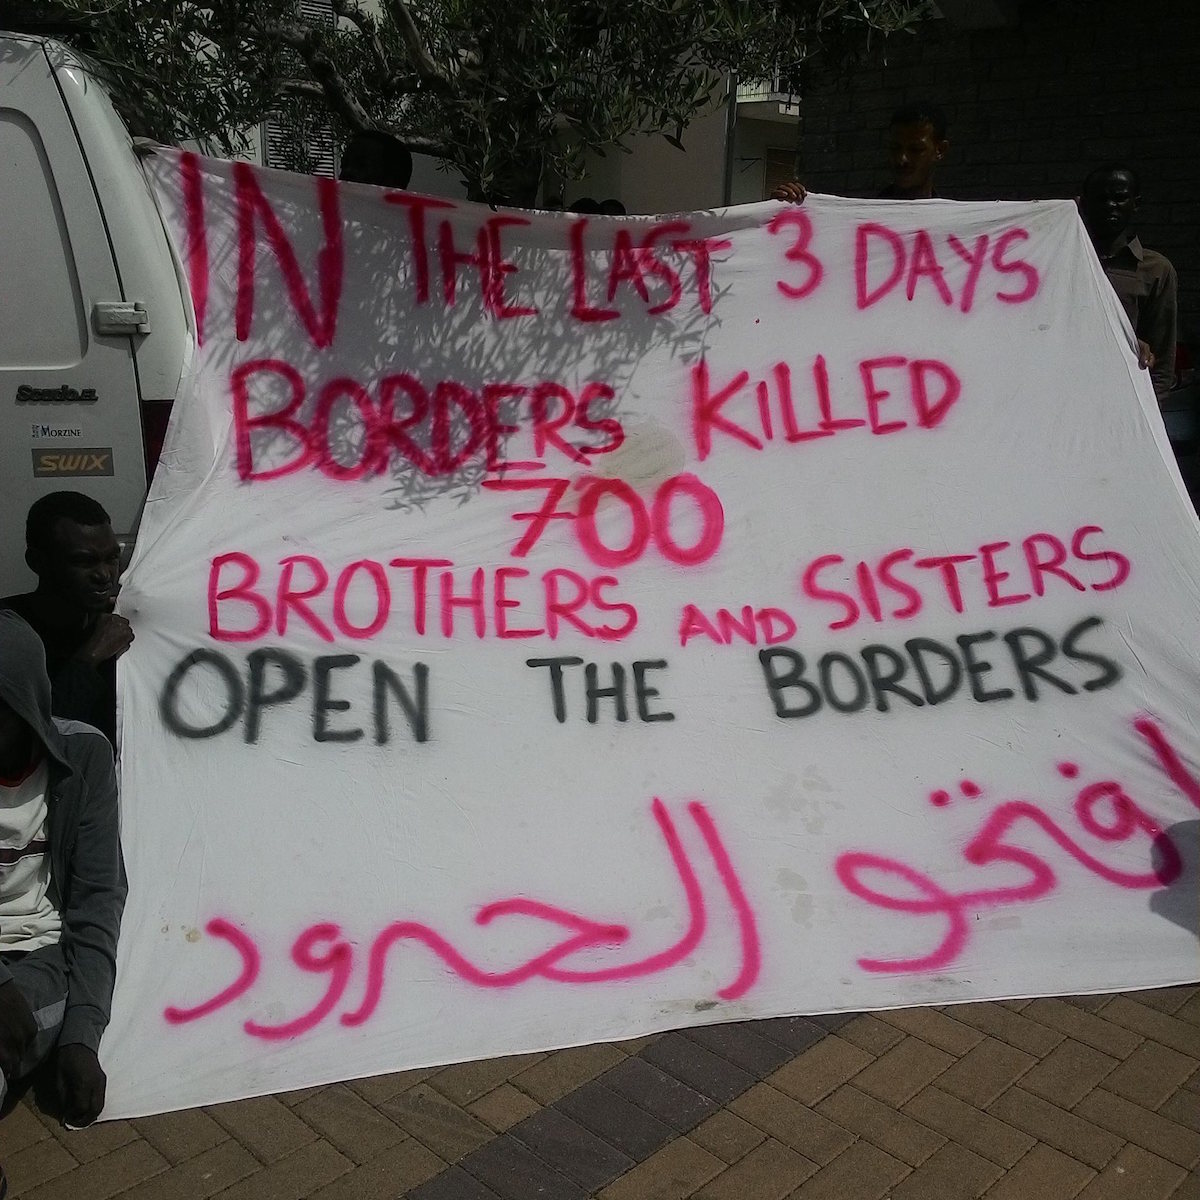 IN THE LAST 3 DAYS
BORDERS KILLED
700
BROTHERS AND SISTERS
OPEN THE BORDERS
افتحو الحدود
Scudo EL
MORZINE
SWIX